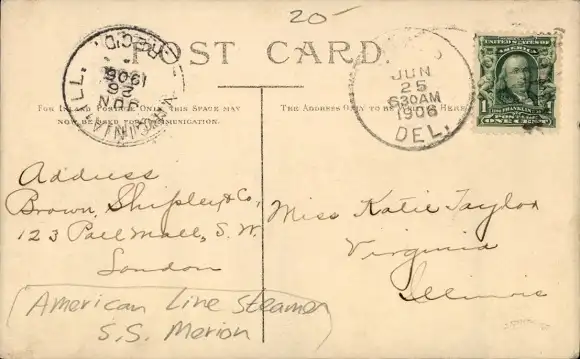 20-
POST CARD.
REC'D.
JUN
26
1906
VIRGINIA, ILL.
JUN
25
630AM
1906
DEL.
UNITED STATES OF
AMERICA
1
FRANKLIN
POSTAGE
ONE CENT
FOR INLAND POSTAGE ONLY THIS SPACE MAY
NOW BE USED FOR COMMUNICATION.
THE ADDRESS ONLY TO BE WRITTEN HERE
Address
Brown, Shipley & Co,
123 Pall Mall, S.W.
London
Miss Katie Taylor
Virginia
Illinois
(American Line Steamer
S.S. Merion)